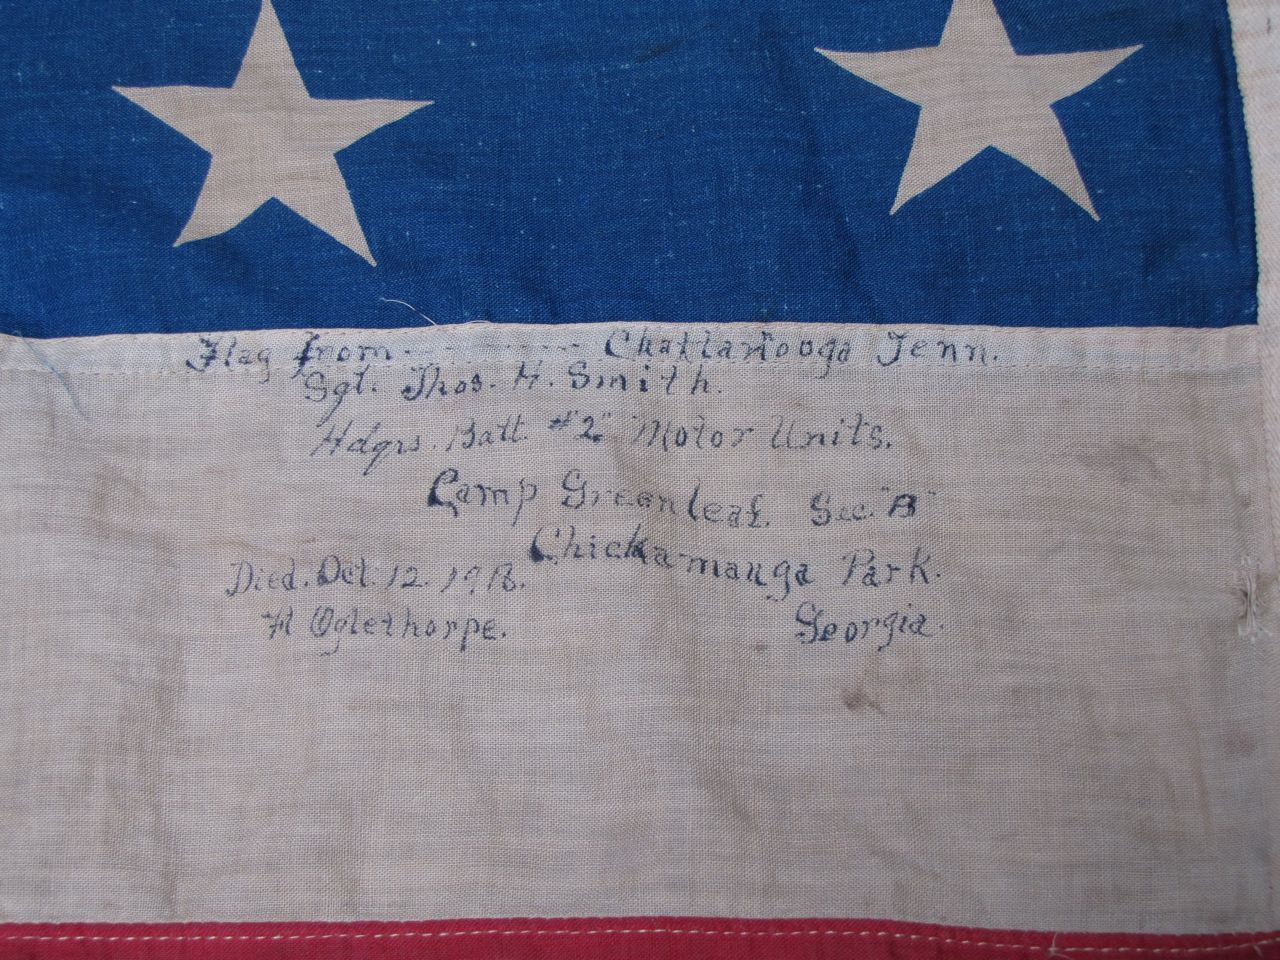 Flag from - - - - - - - - - Chattanooga Tenn.
Sgt. Thos. H. Smith.
Hdqrs. Batt. #"2." Motor Units.
Camp Greenleaf. Sec. "B"
Chickamauga Park.
Died. Oct. 12. 1918.
Ft Oglethorpe.
Georgia.